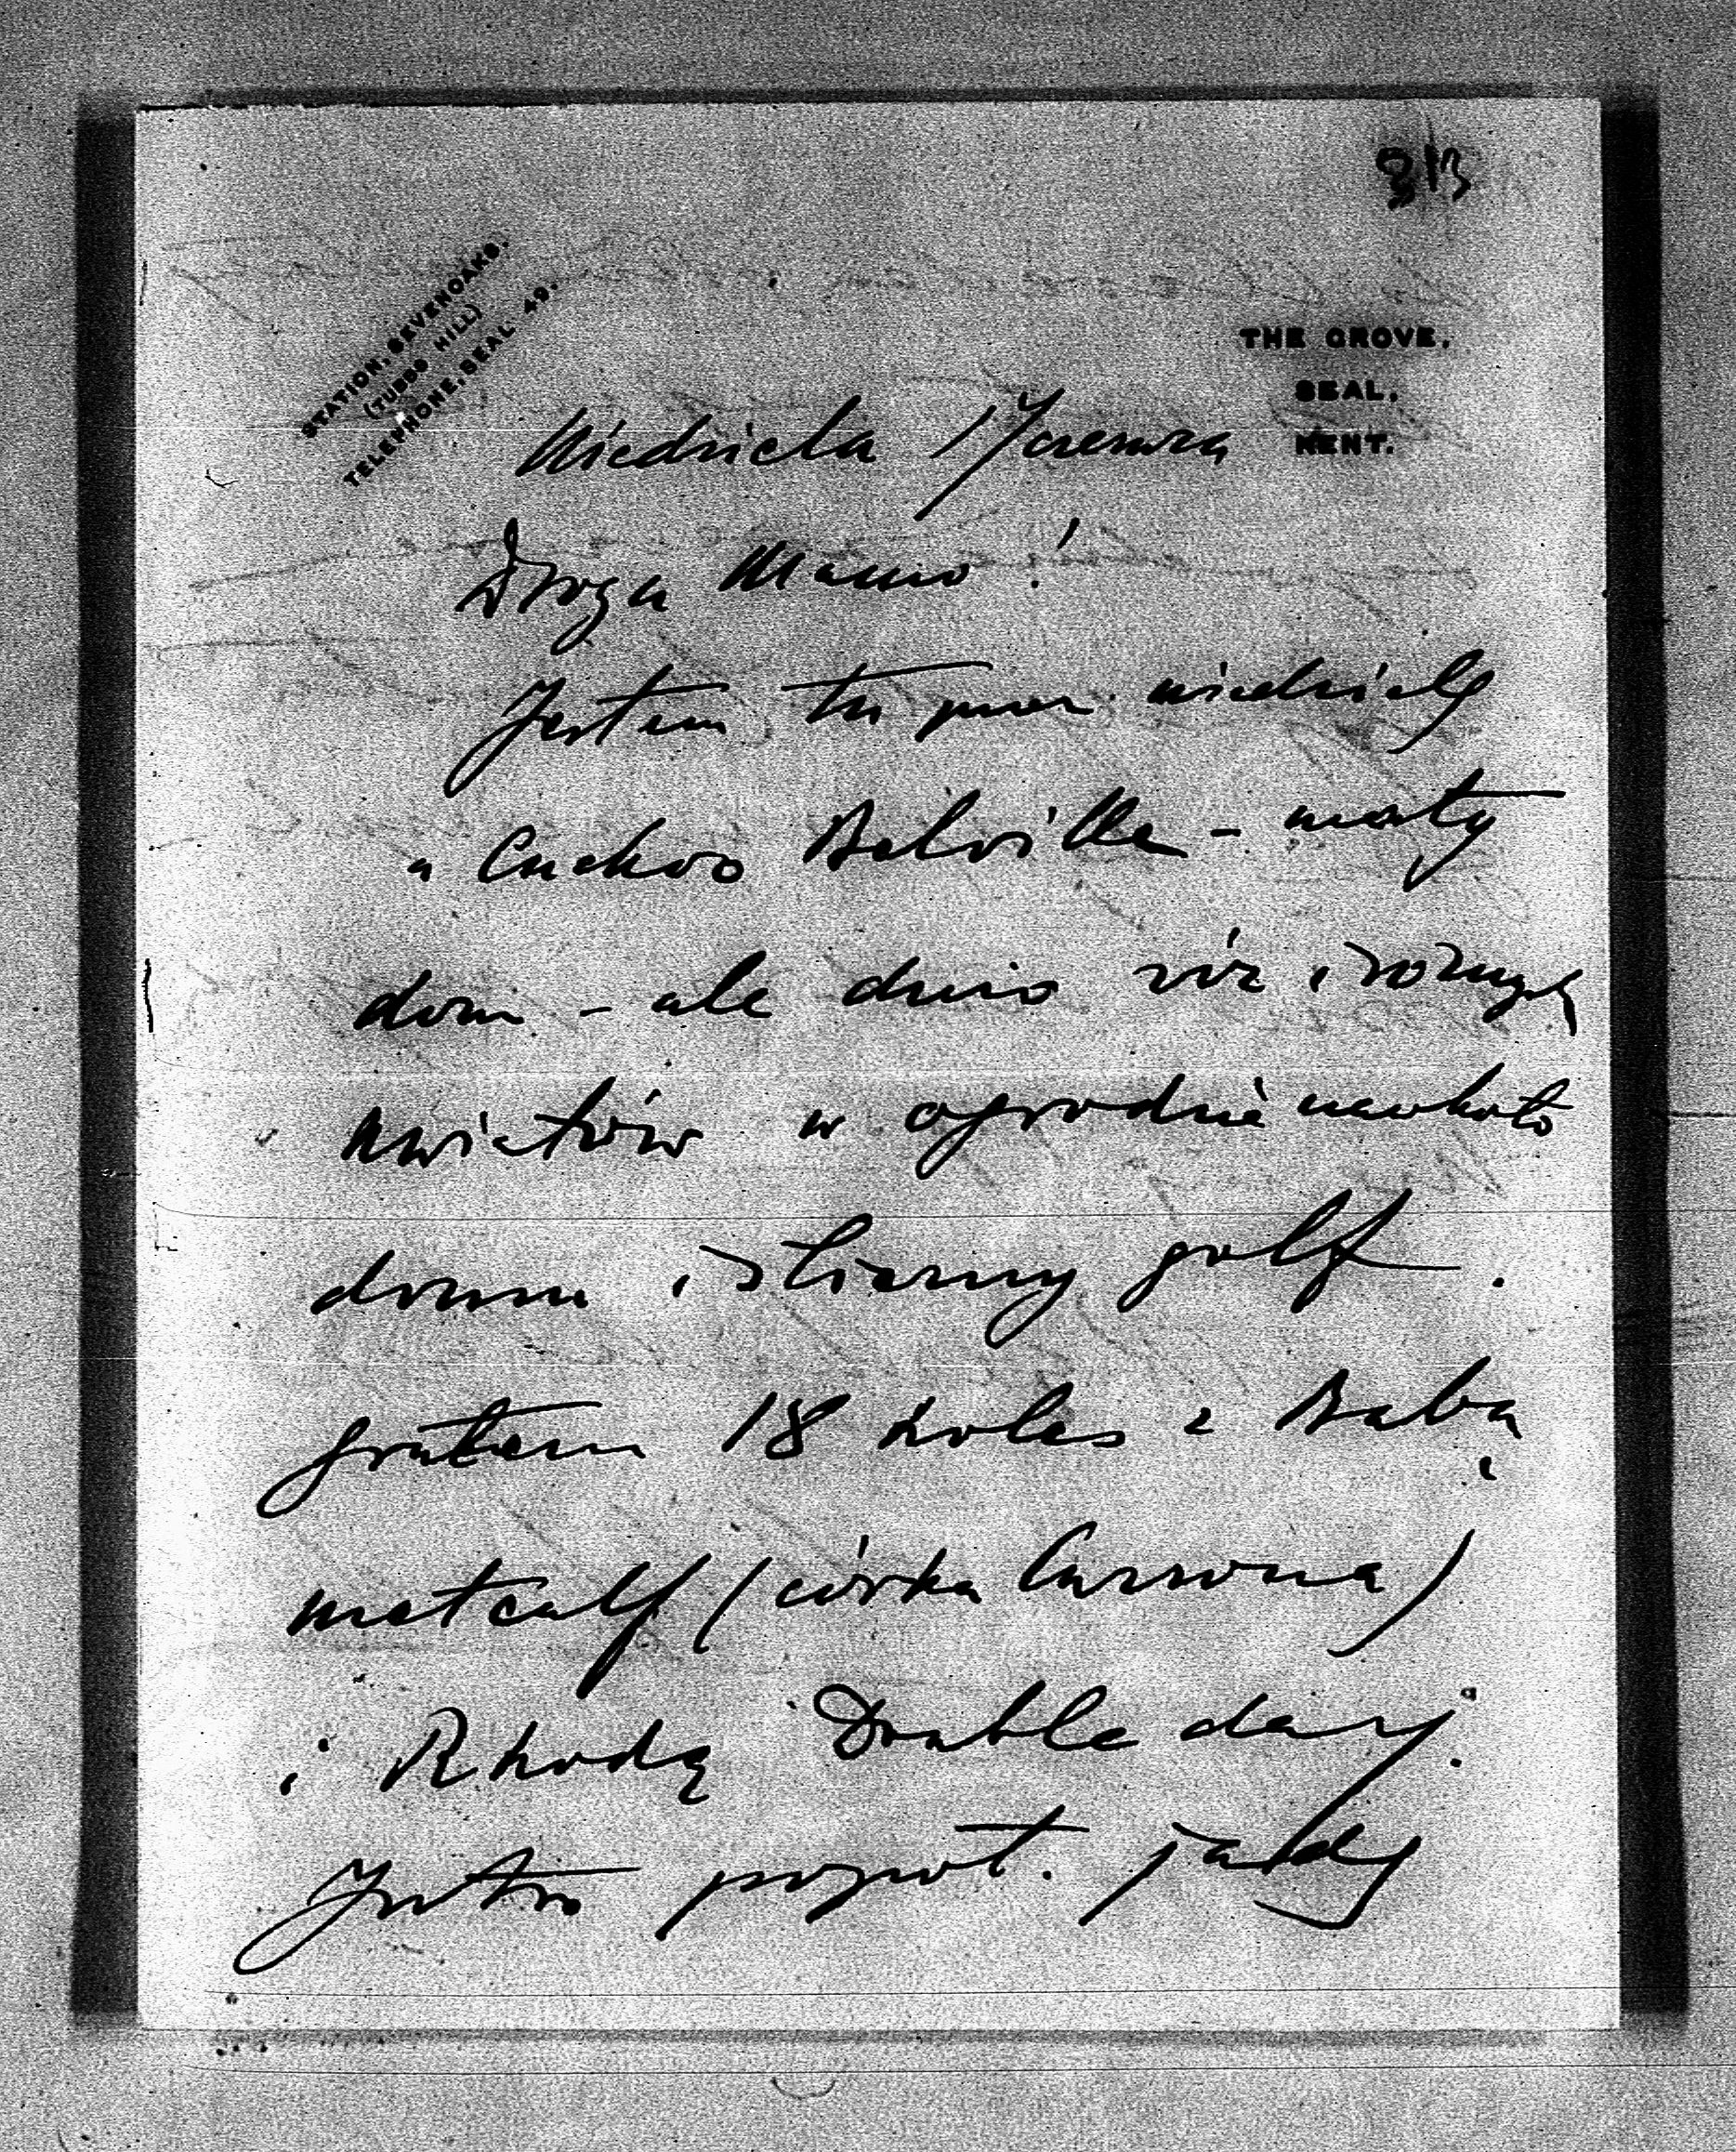 813
STATION, SEVENOAKS.
(TUBBS HILL)
TELEPHONE, SEAL 49.
THE GROVE,
SEAL,
KENT.
Niedziela 17 czerwca
Droga Mamo!
Jestem tu przez niedzielę
u Cuckoo Belville – mały
dom – ale dużo róż i różnych
kwiatów w ogrodzie naokoło
domu i śliczny golf.
Grałem 18 holes z Babą
Metcalf (córka Curzona)
i Rhodą Doubleday.
Jutro popoł. jadę